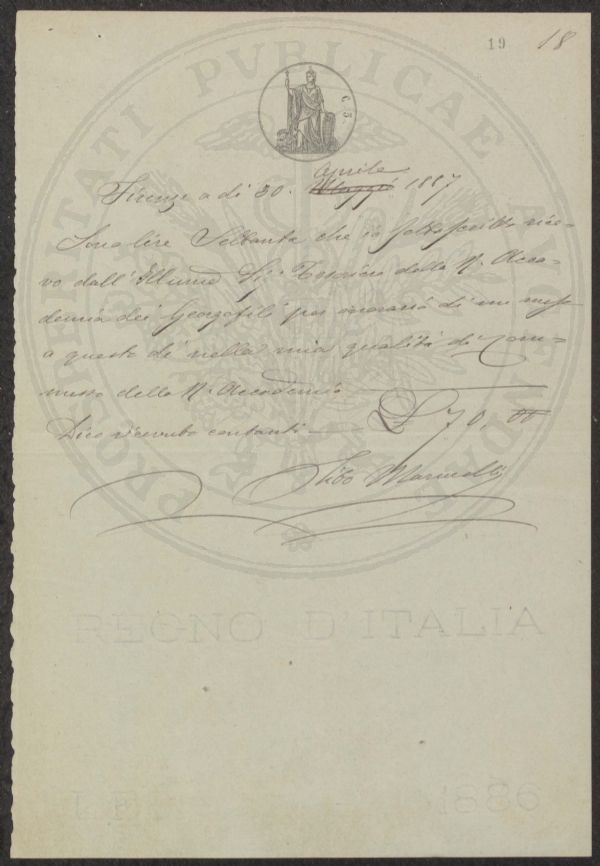 19 18
PROSPERITATI PVBLICAE AVGENDAE
C. 5.
Aprile
Firenze a dì 30. Maggio 1887
Sono lire Settanta che io sottoscritto rice-
vo dall' Illumo Sig. Tesoriere della R. Acca-
demia dei Georgofili per onorario di un mese
a questo dì nella mia qualità di Com-
messo della R. Accademia
Dico ricevute contanti — £ 70, 00
Marinelli
REGNO D'ITALIA
1886